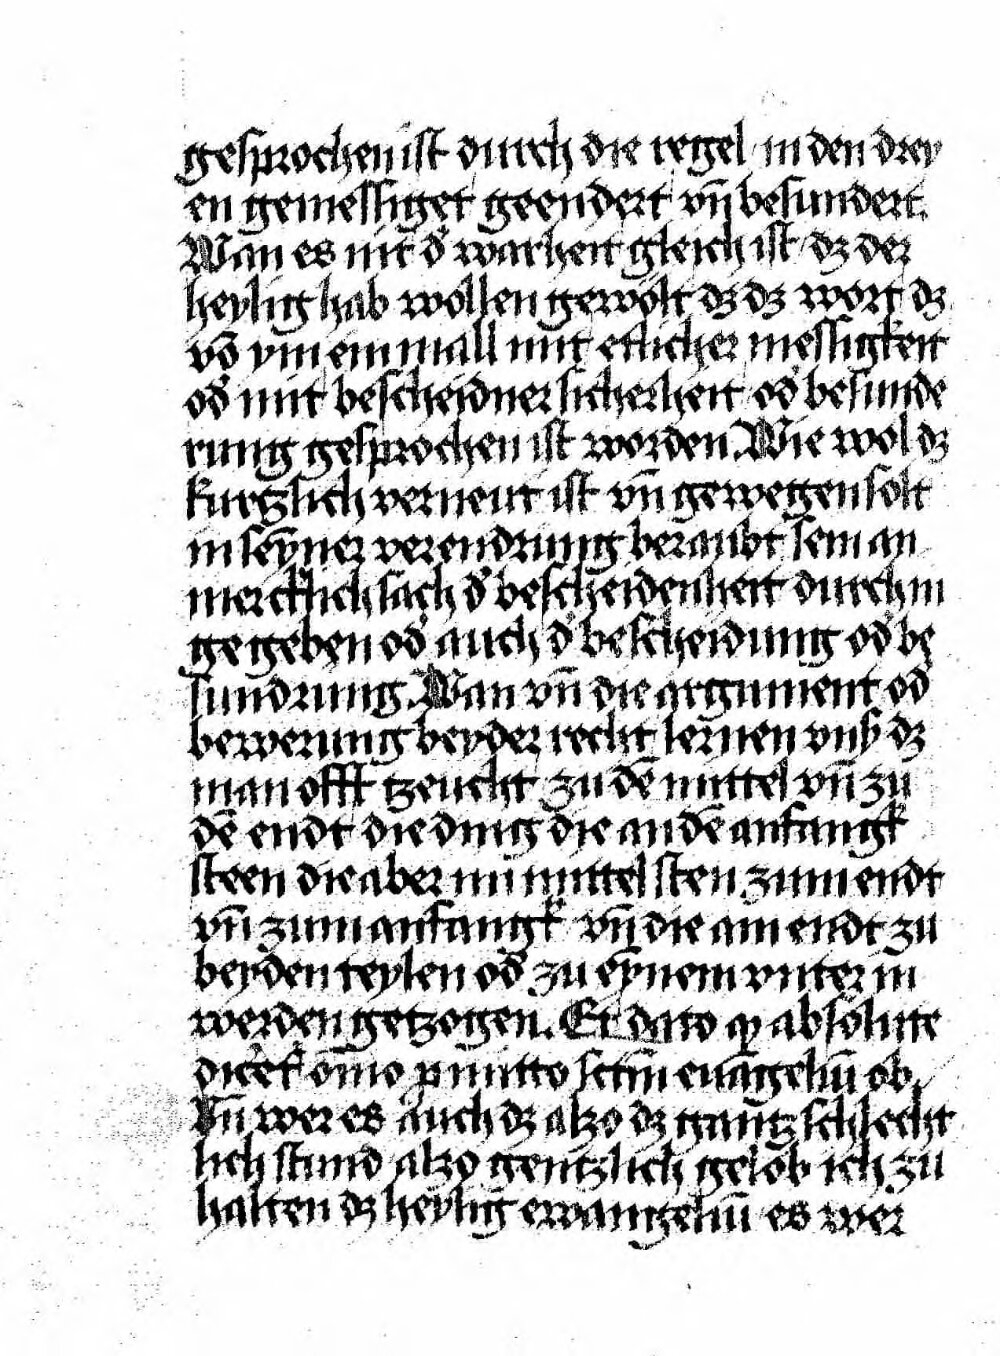 gesprochen ist durch die regel in den drey
en gemessiget geendert vn̄ besundert.
Wan es nit d̓ warheit gleich ist dz der
heylig hab wollen gewolt dz dz wort dz
vō vm ein mall mit etlicher messigkeit
od̓ mit bescheidner sicherheit od̓ besunde
rung gesprochen ist worden. Wie wol dz
kurtzlich verneut ist vn̄ gewegen solt
in seyner verendrung beraubt sein an
mercklich sach d̓ bescheidenheit durch in
gegeben od̓ auch d̓ bescheidung od̓ be
sundrung. Wan vn̄ die argument od̓
bewerung beyder recht lernen vnß dz
man offt tzeucht zu dē mittel vn̄ zu
dē endt die ding die an dē anfangk
steen die aber im mittel sten zum endt
vn̄ zum anfangk vn̄ die am endt zu
beyden teylen od̓ zu eynem vnter in
werden getzogen. Et dato ꝙ absolute
diceret om̄o ꝓmitto sctm̄ euāgeliū ob.
Vn̄ wer es auch dz alzo dz gantz schlecht
lich stund alzo gentzlich gelob ich zu
halten dz heylig ewangeliū es wer